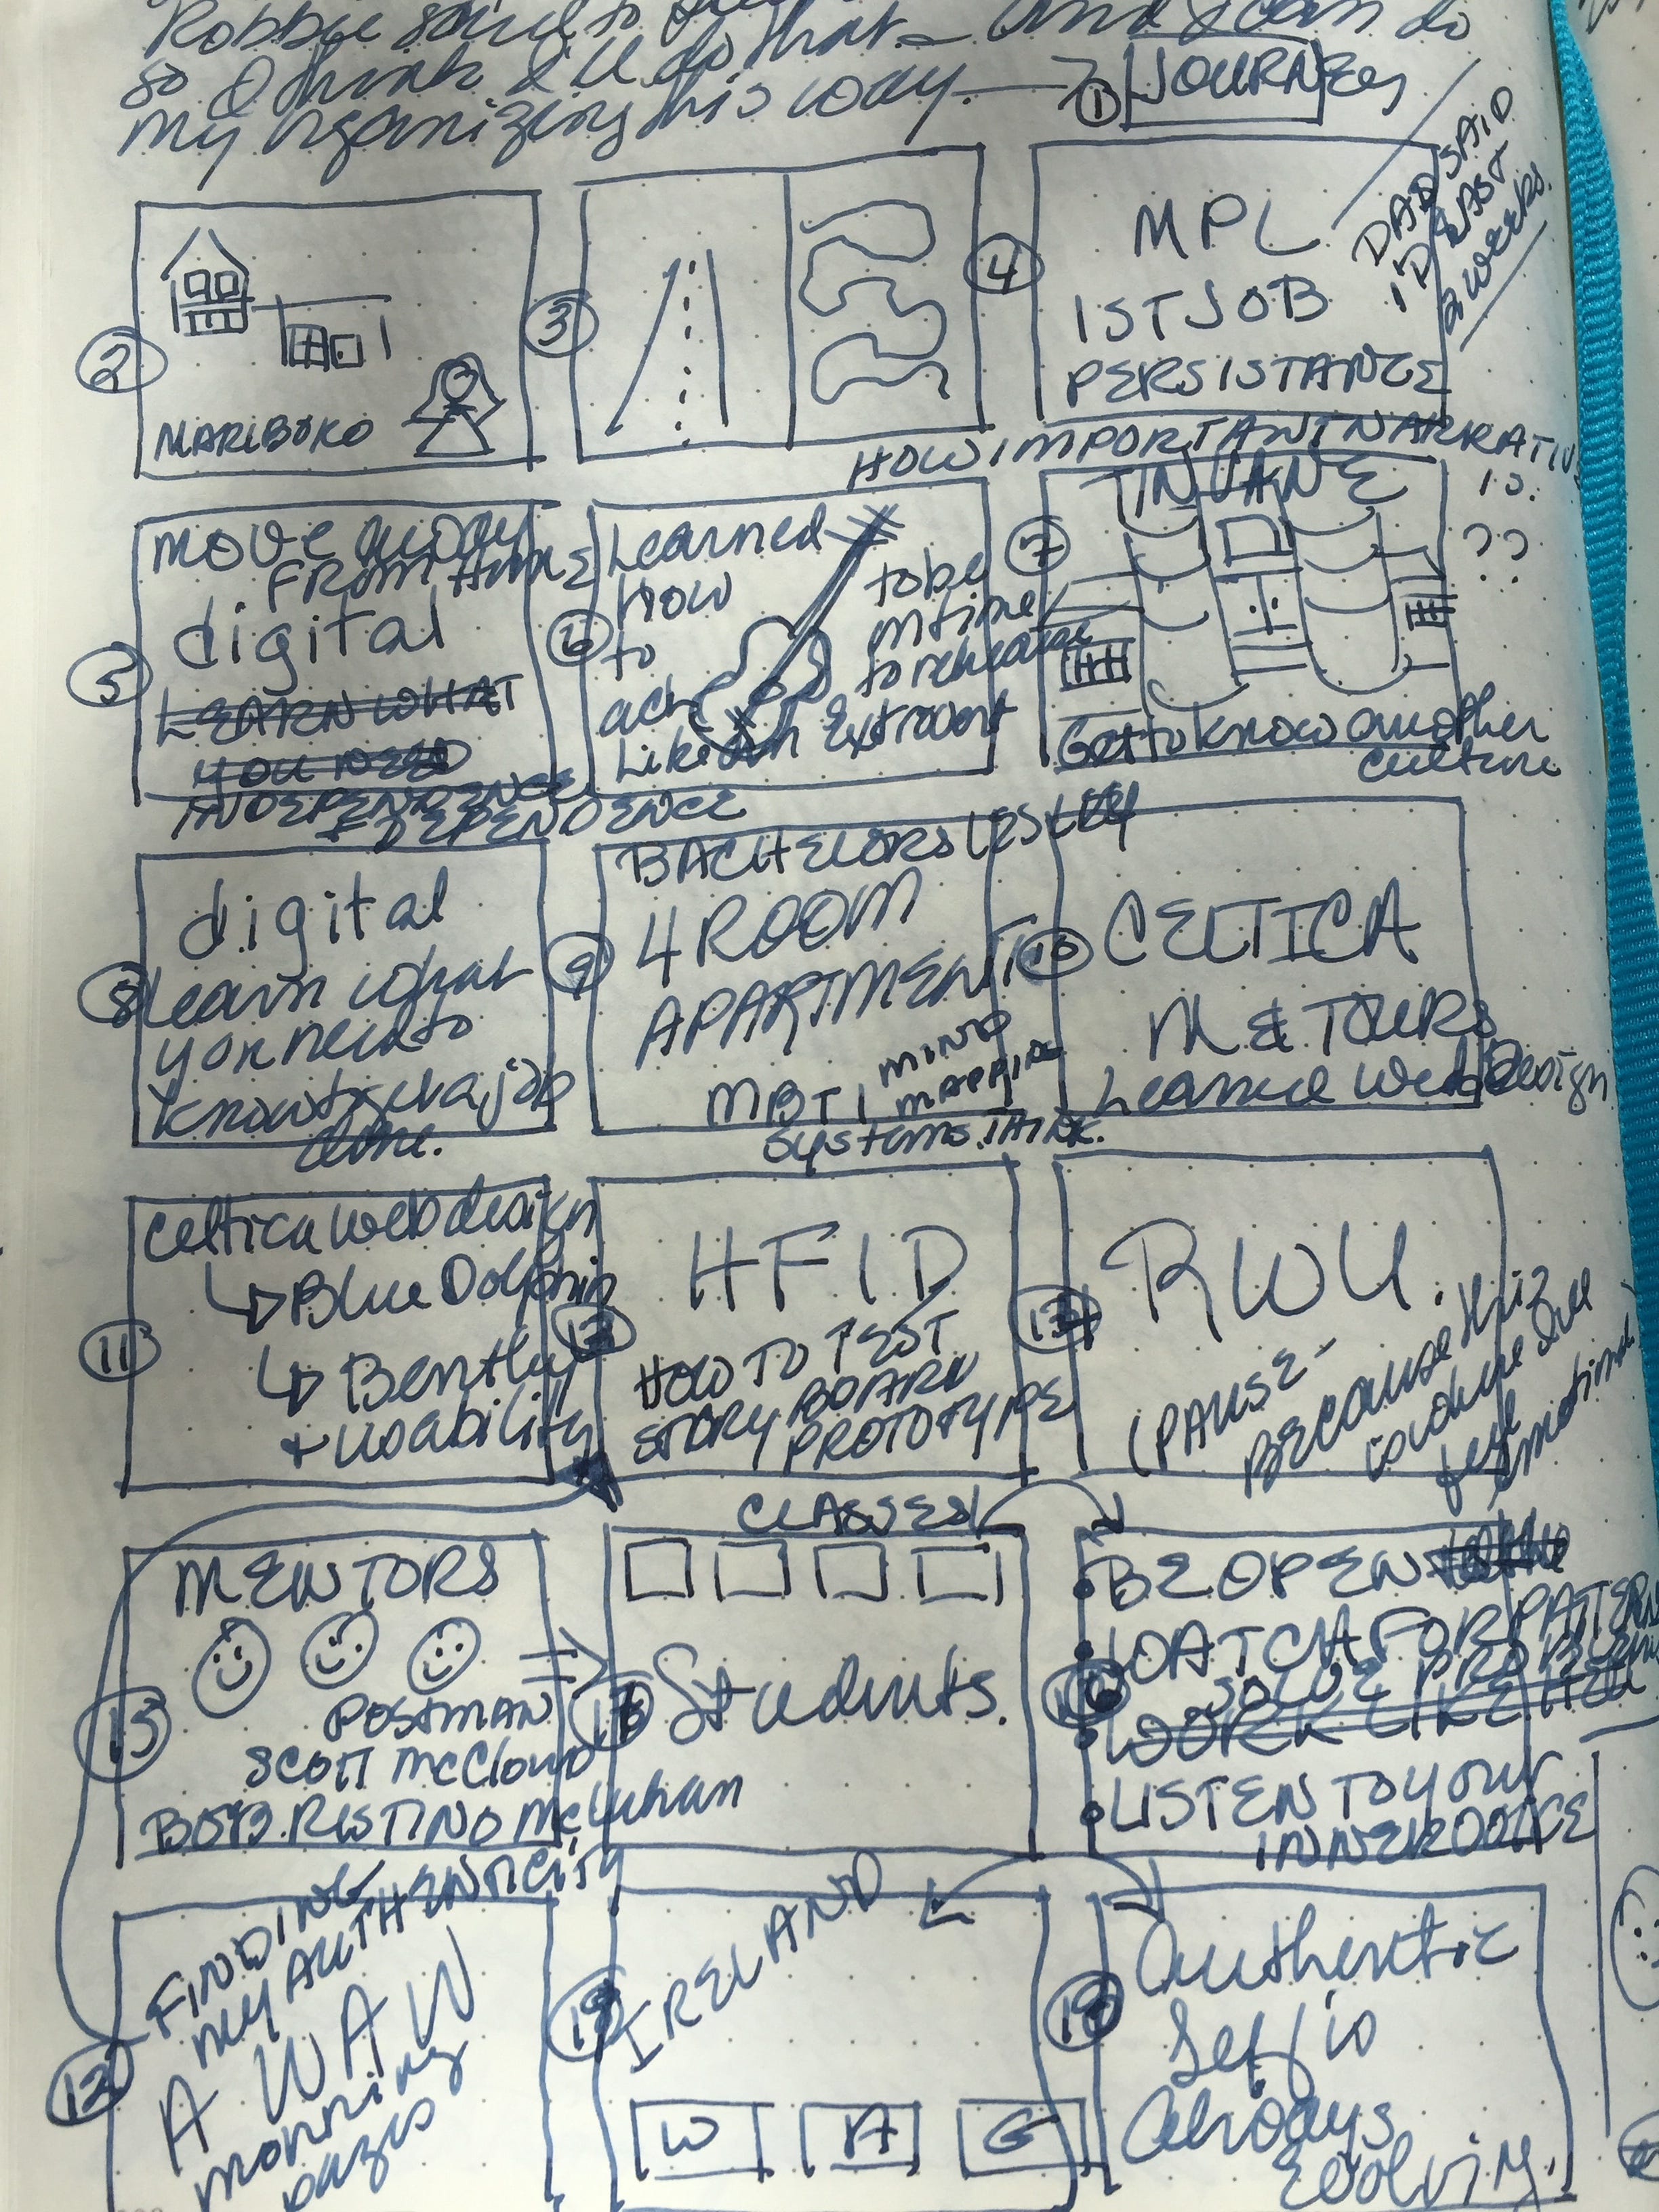 Robbie said to
so I think I'll do that - and I can do
my organizing this way. → ① JOURNEY
DAD SAID
I'D LAST
2 WEEKS.
②
MARLBORO
③
④
MPL
1ST JOB
PERSISTANCE
HOW IMPORTANT NARRATIV
IS.
??
⑤
MOVE away
FROM HOME
digital
LEARN WHAT
YOU NEED
INDEPENDENCE
+ DEPENDENCE
⑥
Learned
How
to
act
Like An Extrovert
to be
on time
to rehearse
⑦
TINVANE
Get to know another
culture
⑧
digital
learn what
you need to
know to get a job
done.
⑨
BACHELORS LESLEY
4 ROOM
APARTMENT
MBTI
MIND
MAPPING
SYSTEMS THINK.
⑩
CELTICA
M & TOURS
Learned Web Design
⑪
Celtica web design
↳ Blue Dolphin
↳ Bently
+ usability
⑫
HFID
HOW TO TEST
STORYBOARD
PROTOTYPE
⑬
RWU.
(PAUSE -
BECAUSE this
is where I will
feel
emotional)
15
MENTORS
POSTMAN
SCOTT McCloud
BOB. RISTINO McLuhan
CLASSES
Students.
BE OPEN
WATCH FOR PATTERN
SOLVE PROBLEMS
WORK LIKE HELL
LISTEN TO YOUR
INNER VOICE
12
FINDING
my AUTHENTICITY
A WAW
morning
pages
IRELAND
W A G
Authentic
Self is
Always
Evolving.